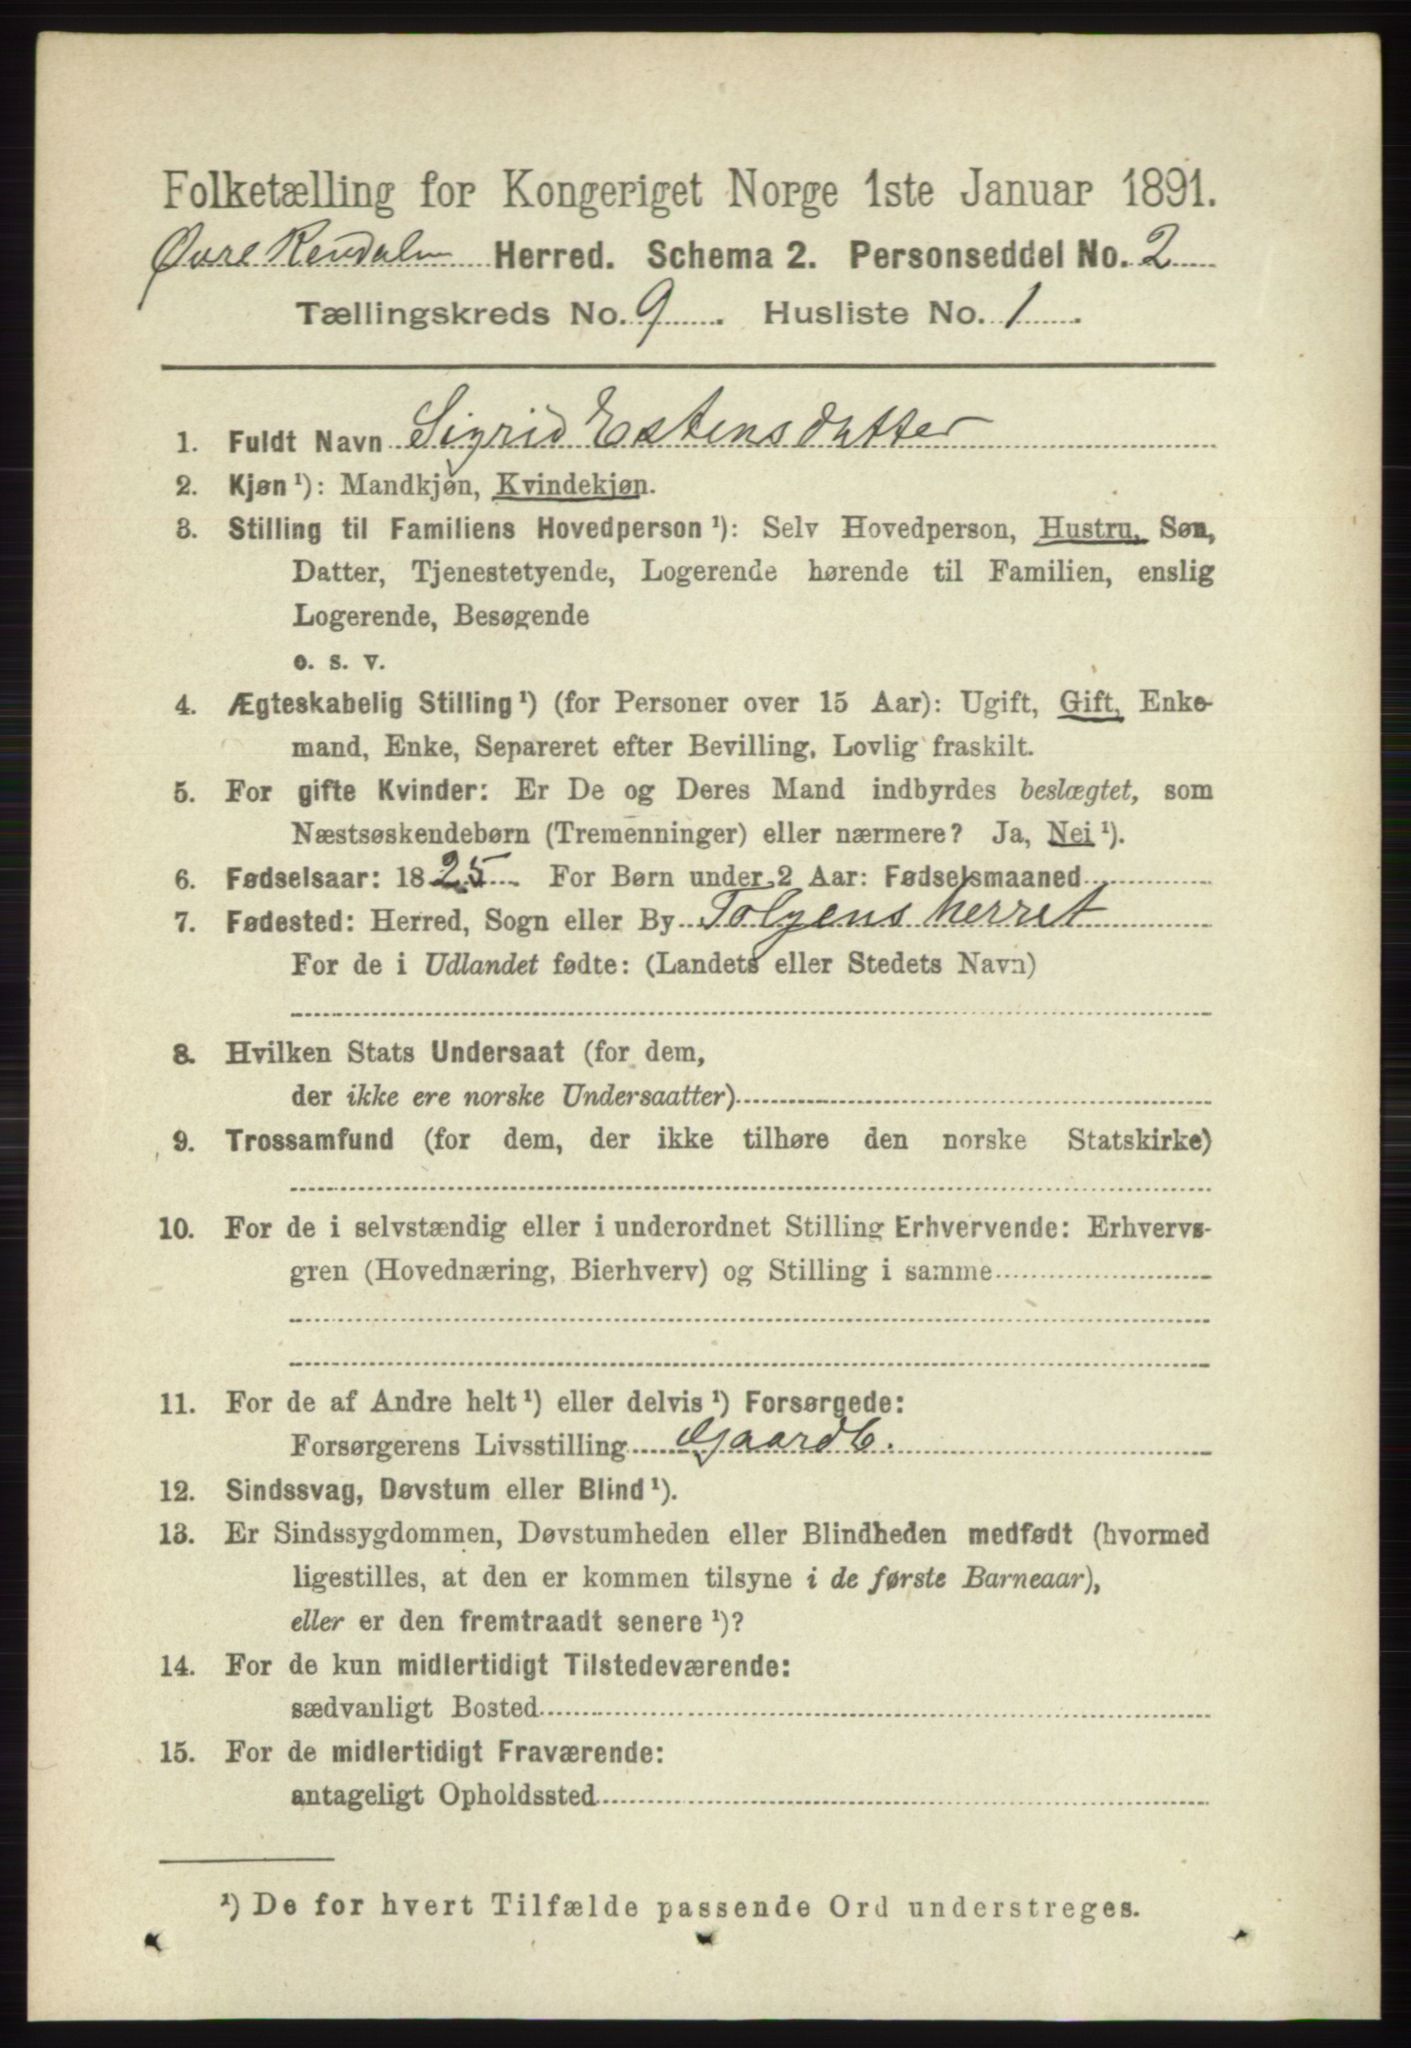 Folketælling for Kongeriget Norge 1ste Januar 1891.
Øvre Rendalen Herred. Schema 2. Personseddel No. 2
Tællingskreds No. 9. Husliste No. 1.
1. Fuldt Navn Sigrid Estensdatter
2. Kjøn ¹): Mandkjøn, Kvindekjøn.
3. Stilling til Familiens Hovedperson ¹): Selv Hovedperson, Hustru, Søn,
Datter, Tjenestetyende, Logerende hørende til Familien, enslig
Logerende, Besøgende
o. s. v.
4. Ægteskabelig Stilling ¹) (for Personer over 15 Aar): Ugift, Gift, Enke-
mand, Enke, Separeret efter Bevilling, Lovlig fraskilt.
5. For gifte Kvinder: Er De og Deres Mand indbyrdes beslægtet, som
Næstsøskendebørn (Tremenninger) eller nærmere? Ja, Nei ¹).
6. Fødselsaar: 1825. For Børn under 2 Aar: Fødselsmaaned
7. Fødested: Herred, Sogn eller By Tolgens herret
For de i Udlandet fødte: (Landets eller Stedets Navn)
8. Hvilken Stats Undersaat (for dem,
der ikke ere norske Undersaatter)
9. Trossamfund (for dem, der ikke tilhøre den norske Statskirke)
10. For de i selvstændig eller i underordnet Stilling Erhvervende: Erhvervs-
gren (Hovednæring, Bierhverv) og Stilling i samme
11. For de af Andre helt ¹) eller delvis ¹) Forsørgede:
Forsørgerens Livsstilling Gaardb.
12. Sindssvag, Døvstum eller Blind ¹).
13. Er Sindssygdommen, Døvstumheden eller Blindheden medfødt (hvormed
ligestilles, at den er kommen tilsyne i de første Barneaar),
eller er den fremtraadt senere ¹)?
14. For de kun midlertidigt Tilstedeværende:
sædvanligt Bosted
15. For de midlertidigt Fraværende:
antageligt Opholdssted
¹) De for hvert Tilfælde passende Ord understreges.